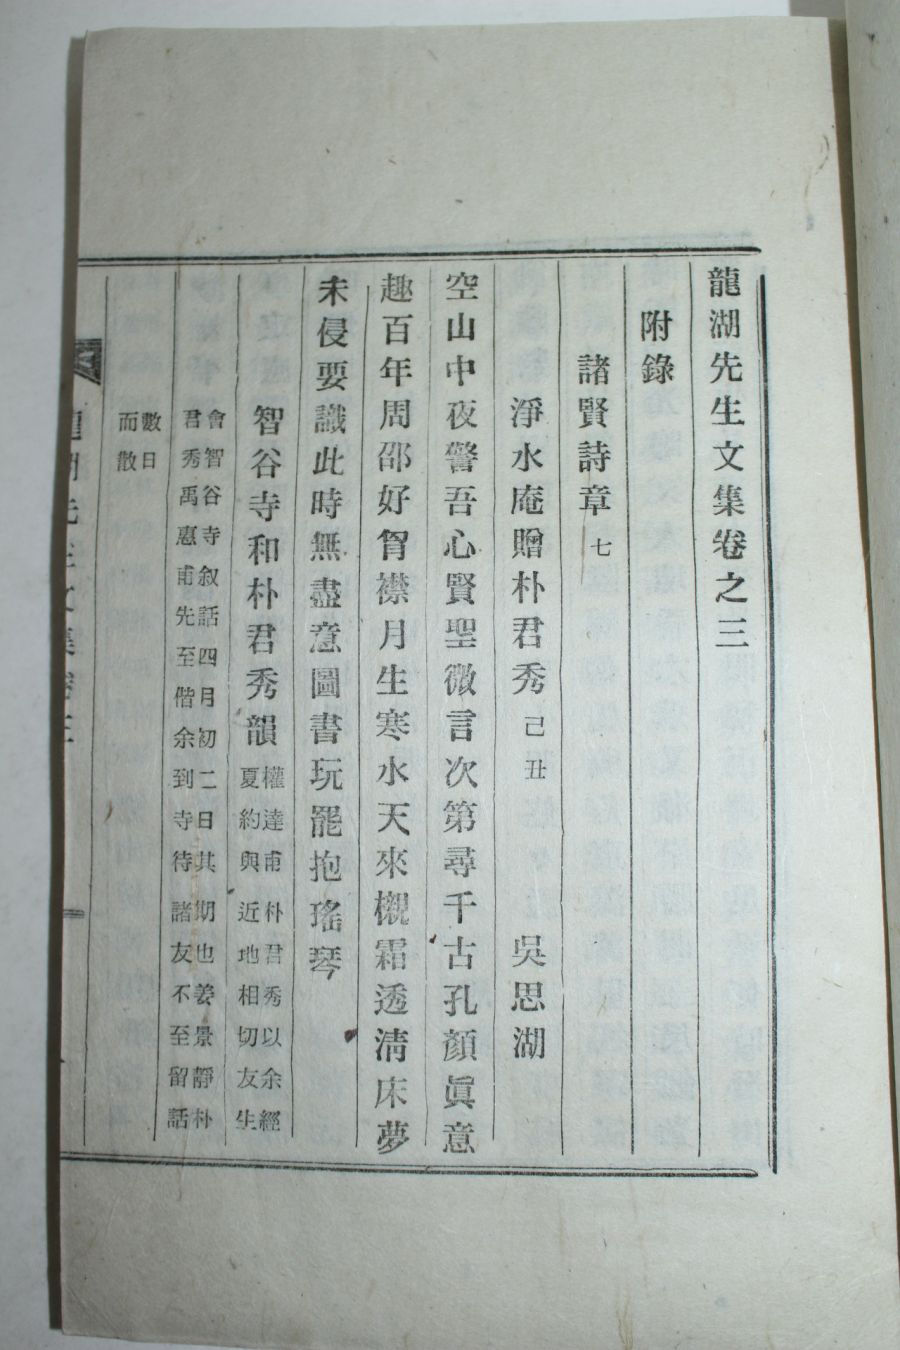 龍湖先生文集卷之三
附錄
諸賢詩章 七
淨水庵贈朴君秀 己丑 吳思湖
空山中夜警吾心賢聖微言次第尋千古孔顏眞意
趣百年周邵好胷襟月生寒水天來櫬霜透淸床夢
未侵要識此時無盡意圖書玩罷抱瑤琴
智谷寺和朴君秀韻 權達甫朴君秀以余經
夏約與近地相切友生
會智谷寺叙話四月初二日其期也姜景靜朴
君秀禹惠甫先至偕余到寺待諸友不至留話
數日
而散
龍湖先生文集卷三